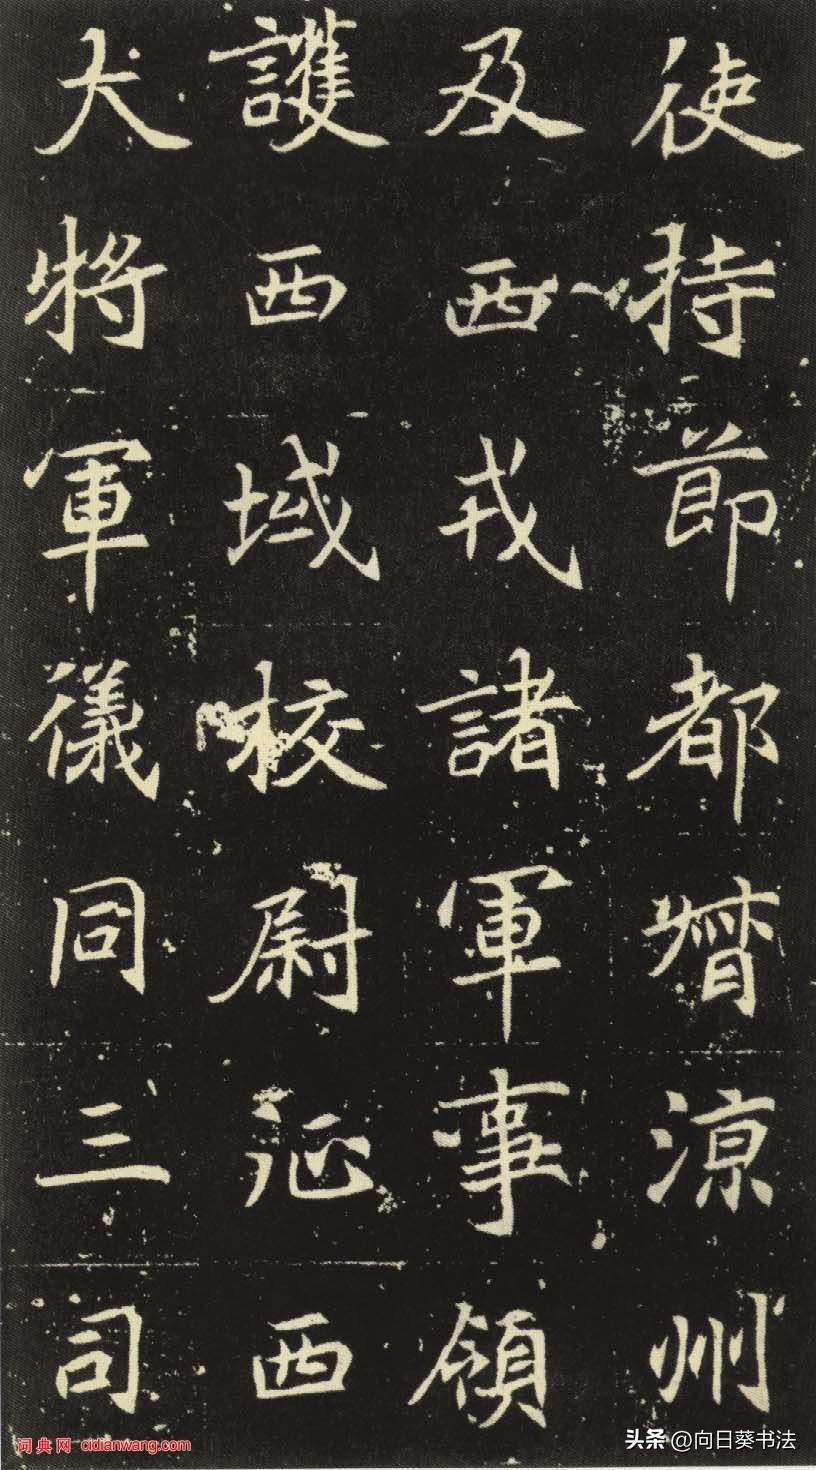 使持節都督涼州
及西戎諸軍事領
護西域校尉征西
大將軍儀同三司
词典网 cidianwang.com
头条 @向日葵书法